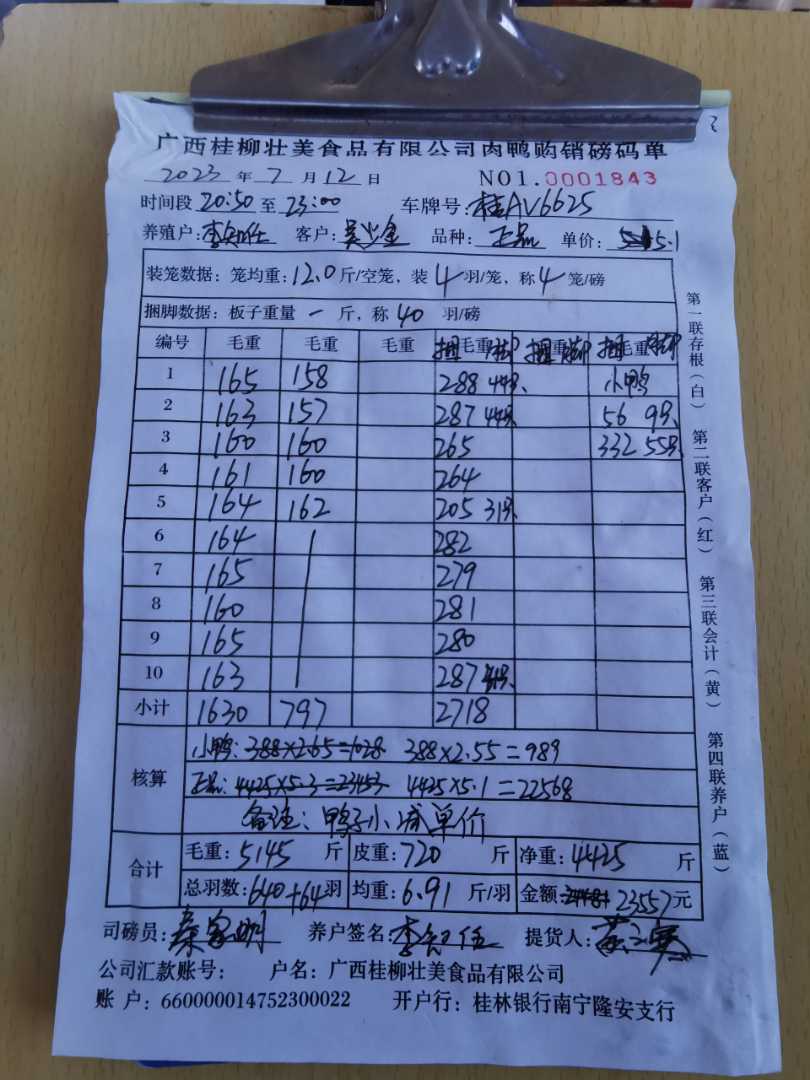 广西桂柳壮美食品有限公司肉鸭购销磅码单
2023 年 7 月 12 日 NO1.0001843
时间段 20:50 至 23:00 车牌号: 桂AV6625
养殖户: 客户: 品种: 正品 单价: 5.1
装笼数据: 笼均重: 12.0 斤/空笼, 装 4 羽/笼, 称 4 笼/磅
捆脚数据: 板子重量 一 斤, 称 40 羽/磅
编号 毛重 毛重 毛重 捆毛重脚 捆毛重脚 捆毛重脚
1 165 158 288 44只 小鸭
2 163 157 287 44只 56 9只
3 160 160 265 332 55只
4 161 160 264
5 164 162 205 31只
6 164 282
7 165 279
8 160 281
9 165 280
10 163 287
小计 1630 797 2718
核算
小鸭: 388×2.65=1028 388×2.55=989
正品: 4425×5.3=23453 4425×5.1=22568
备注: 鸭子小, 减单价
合计
毛重: 5145 斤 皮重: 720 斤 净重: 4425 斤
总羽数: 640+64 羽 均重: 6.91 斤/羽 金额 23557 元
司磅员: 养户签名: 提货人:
公司汇款账号: 户名: 广西桂柳壮美食品有限公司
账 户: 660000014752300022 开户行: 桂林银行南宁隆安支行
第一联存根(白) 第二联客户(红) 第三联会计(黄) 第四联养户(蓝)